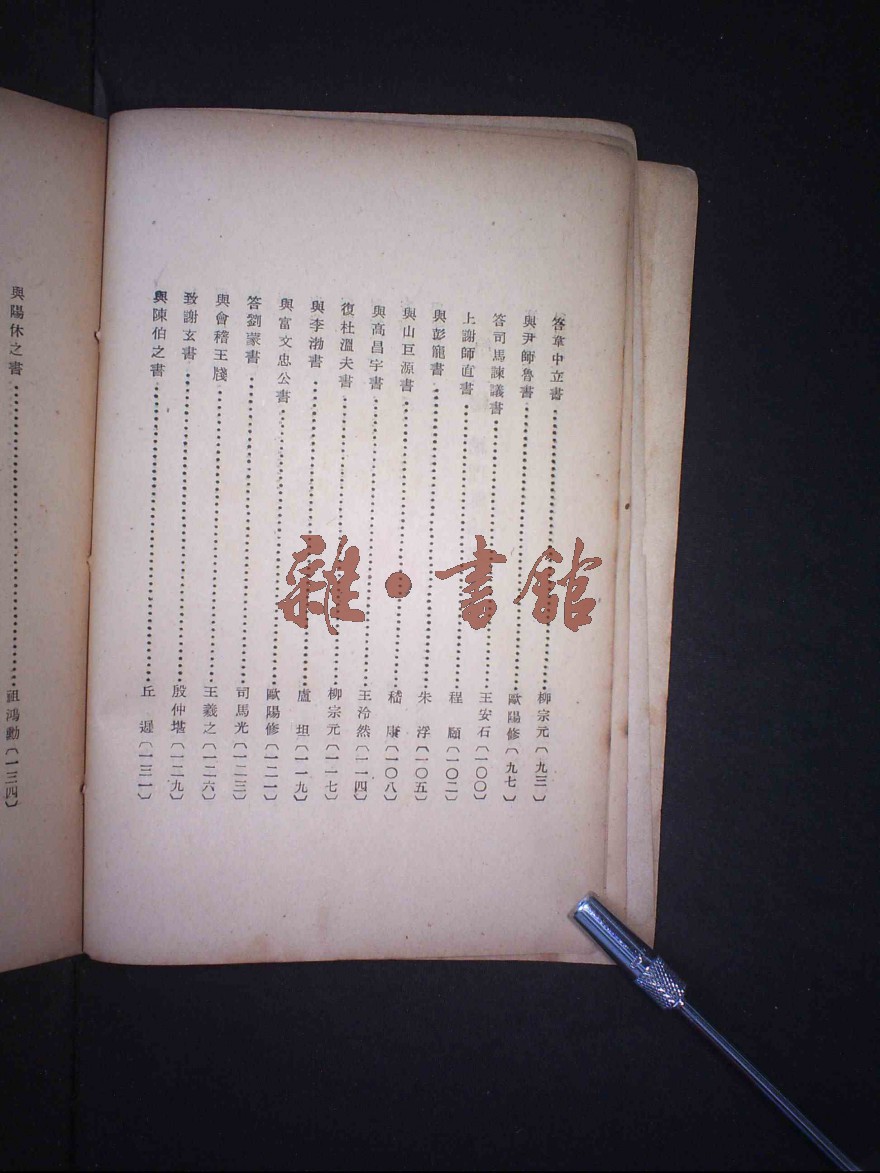 答韋中立書 柳宗元〔九三〕
與尹師魯書 歐陽修〔九七〕
答司馬諫議書 王安石〔一〇〇〕
上謝師直書 程頤〔一〇二〕
與彭寵書 朱浮〔一〇五〕
與山巨源書 嵇康〔一〇八〕
與高昌宇書 王泠然〔一一四〕
復杜溫夫書 柳宗元〔一一七〕
與李渤書 盧坦〔一一九〕
與富文忠公書 歐陽修〔一二一〕
答劉蒙書 司馬光〔一二三〕
與會稽王牋 王羲之〔一二六〕
致謝玄書 殷仲堪〔一二九〕
與陳伯之書 丘遲〔一三一〕
與陽休之書 祖鴻勳〔一三四〕
雜·書館